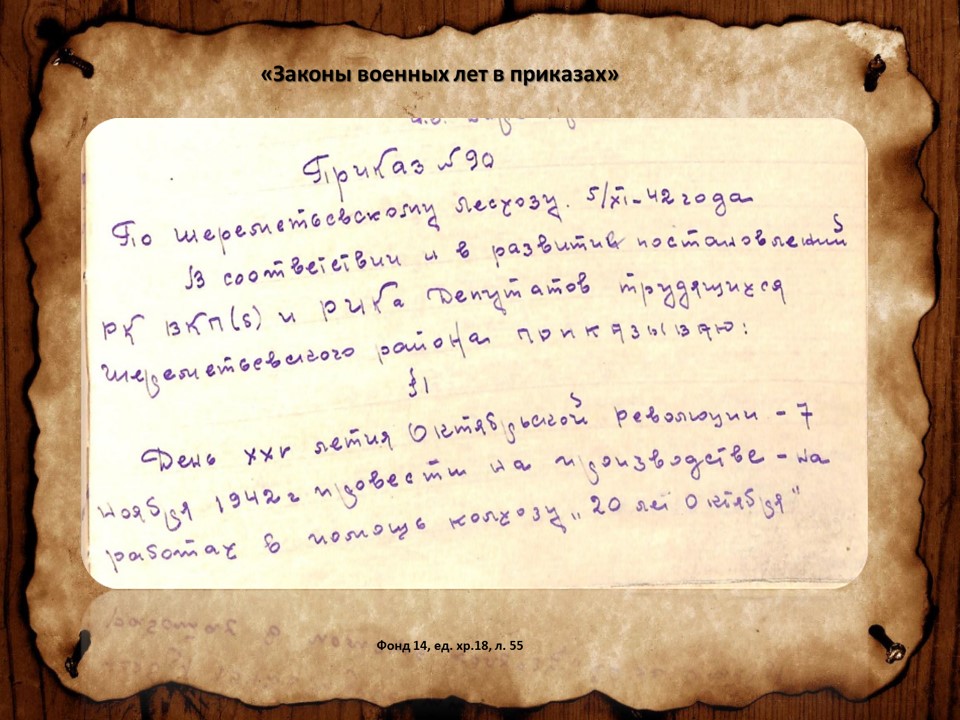 «Законы военных лет в приказах»
Приказ №90
По шереметьевскому лесхозу. 5/XI-42 года
В соответствии и в развитии постановлений
РК ВКП(б) и РИКа Депутатов трудящихся
Шереметьевского района приказываю:
§1
День XXV летия Октябрьской Революции - 7
ноября 1942 г провести на производстве - на
работах в помощь колхозу „20 лет Октября"
Фонд 14, ед. хр.18, л. 55